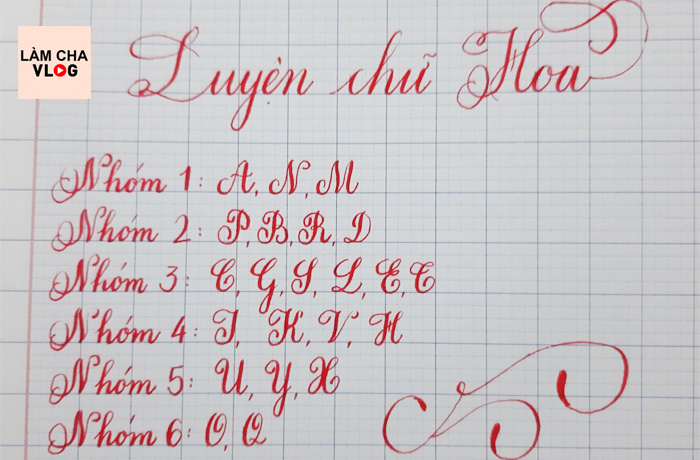 LÀM CHA
VLOG
Luyện chữ Hoa
Nhóm 1: A, N, M
Nhóm 2: P, B, R, D
Nhóm 3: C, G, S, L, E, T
Nhóm 4: I, K, V, H
Nhóm 5: U, Y, X
Nhóm 6: O, Q